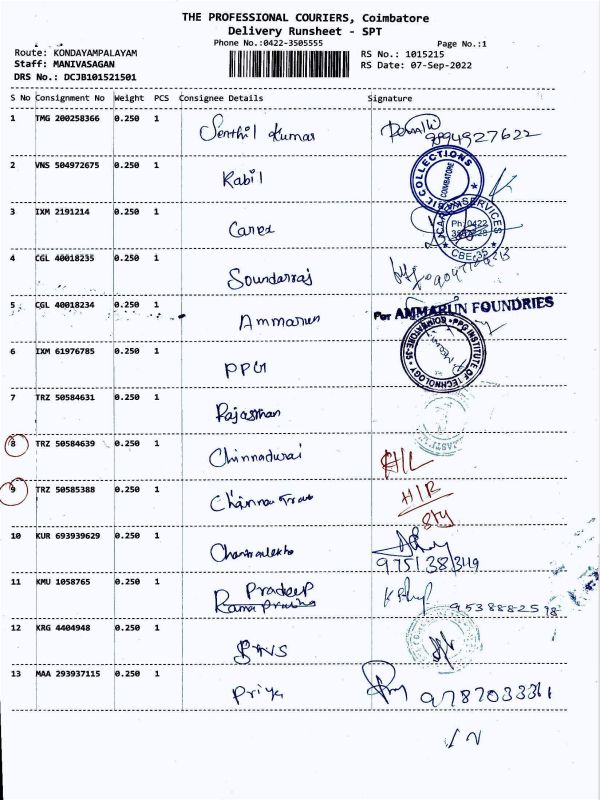 THE PROFESSIONAL COURIERS, Coimbatore
Delivery Runsheet - SPT
Phone No.:0422-3505555 Page No.:1
Route: KONDAYAMPALAYAM RS No.: 1015215
Staff: MANIVASAGAN RS Date: 07-Sep-2022
DRS No.: DCJB101521501
S No Consignment No Weight PCS Consignee Details Signature
1 TMG 200258366 0.250 1 Senthil Kumar 9894927622
2 VNS 504972675 0.250 1 Kabil COLLECTIONS COIMBATORE
3 IXM 2191214 0.250 1 Carex SERVICES Ph:0422 CBE-35
4 CGL 40018235 0.250 1 Soundarraj
5 CGL 40018234 0.250 1 Ammarun For AMMARUN FOUNDRIES
6 IXM 61976785 0.250 1 PPG PPG INSTITUTE OF TECHNOLOGY COIMBATORE-35
7 TRZ 50584631 0.250 1 Rajasthan
8 TRZ 50584639 0.250 1 Chinnadurai
9 TRZ 50585388 0.250 1 H/R
10 KUR 693939629 0.250 1 Chantralekha 9751383149
11 KMU 1058765 0.250 1 Pradeep 9538882598
12 KRG 4404948 0.250 1
13 MAA 293937115 0.250 1 Priya